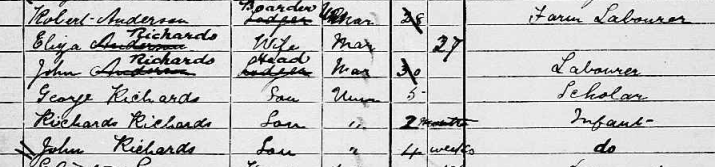 Robert Anderson Boarder Lodger Un Mar 28 Farm Labourer
Eliza Anderson Richards Wife Mar 27
John Anderson Richards Head Lodger Mar 30 Labourer
George Richards Son Unm 5 Scholar
Richards Richards Son " 2 months Infant
John Richards Son " 4 weeks do